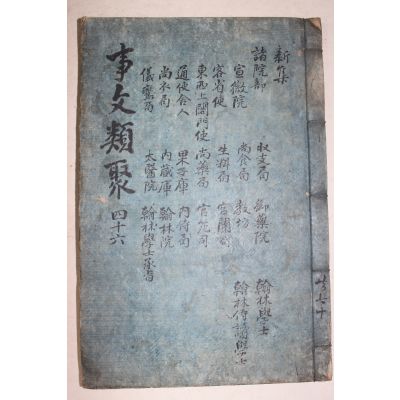 新集
諸院部 收支局 御藥院 翰林學士
宣徽院 尚食局 教坊 翰林侍讀學士
客省使 生料局 宮闈局
東西上閤門使 尚藥局 官苑司
通使舍人 果子庫 內侍局
尚衣局 內藏庫 翰林院
儀鸞局 太醫院 翰林學士承旨
事文類聚 四十六
共七十